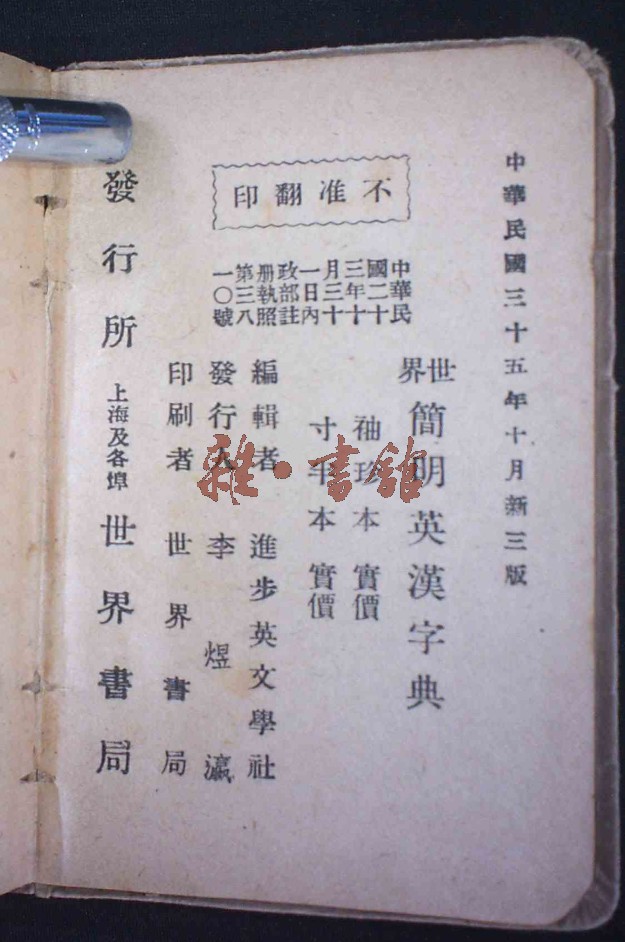 中華民國三十五年十月新三版
不准翻印
中華民
國二十
三年十
月三十
一日內
政部註
册執照
第三八
一〇號
世界
簡明英漢字典
袖珍本 實價
寸半本 實價
編輯者 進步英文學社
發行人 李煜瀛
印刷者 世界書局
發行所 上海及各埠 世界書局
雅·書館